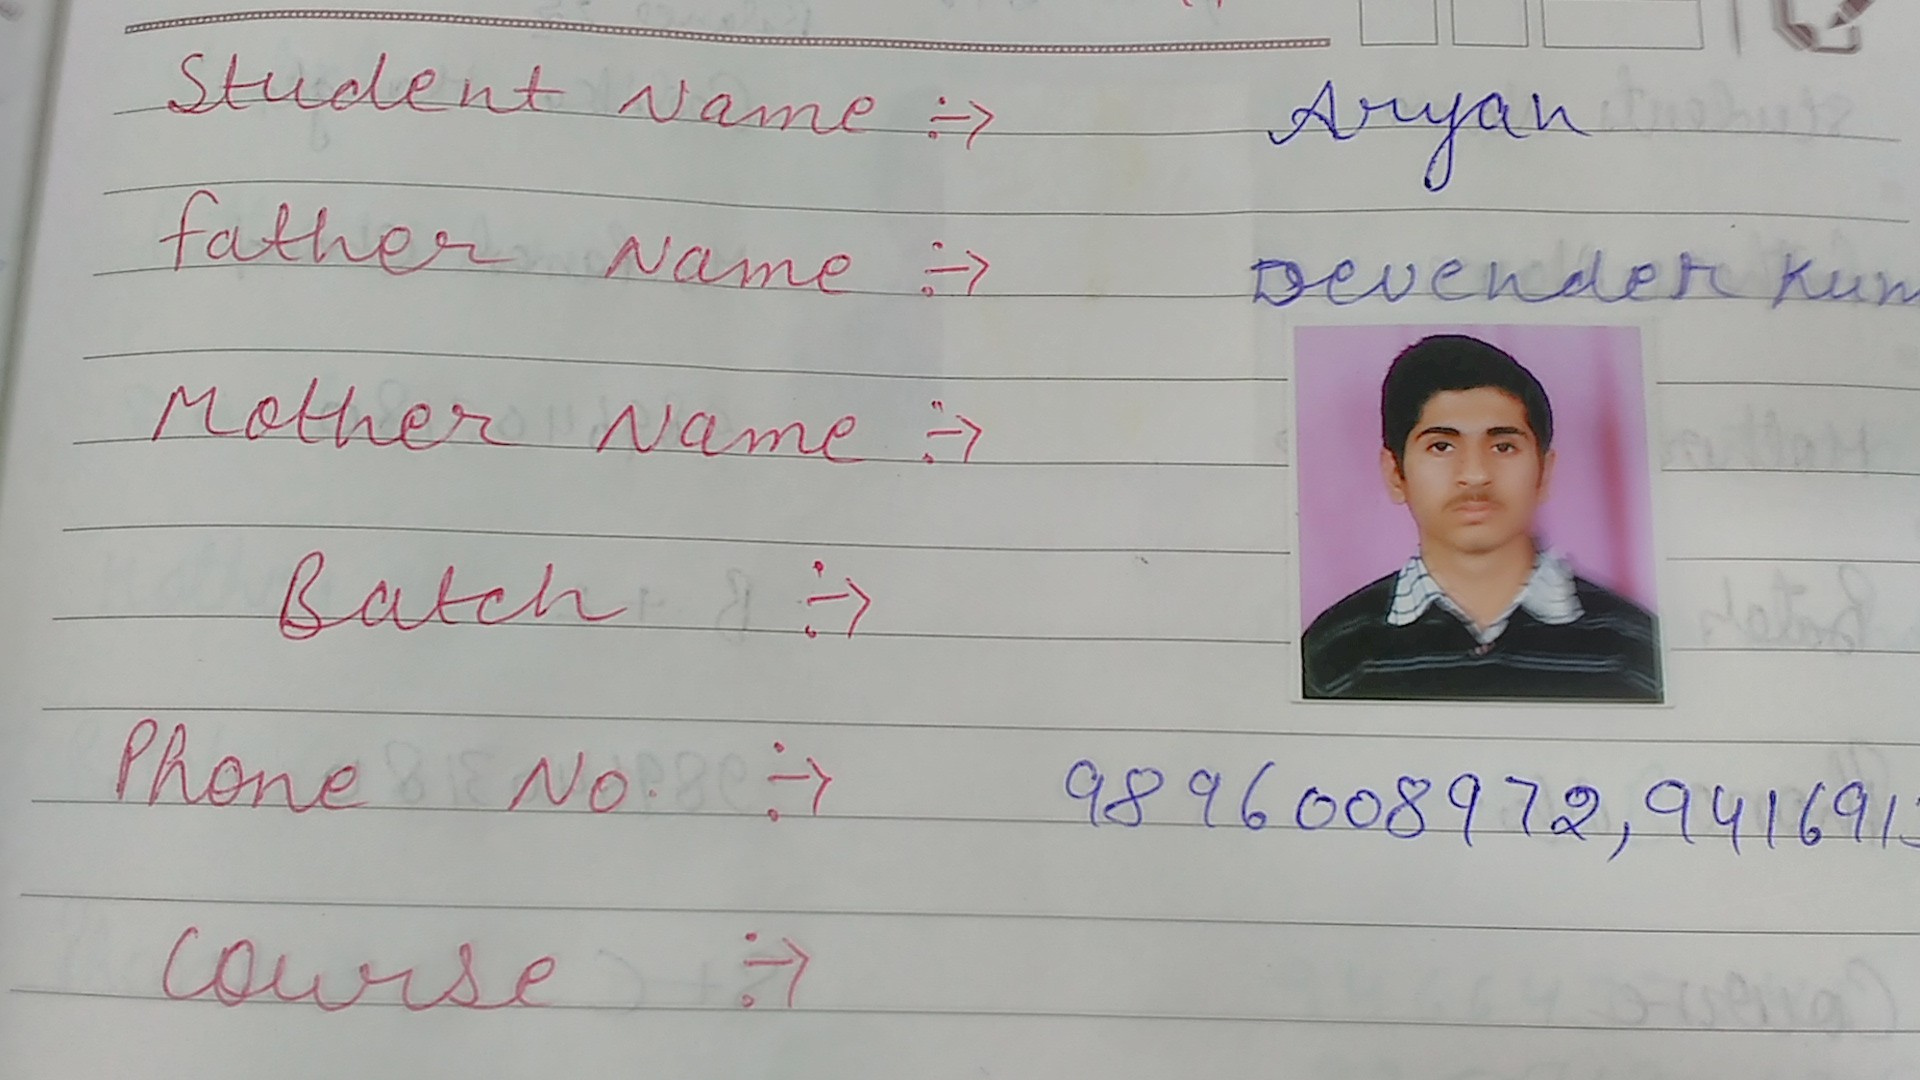 Student Name ÷> Aryan
Father Name ÷> Devender Kum
Mother Name ÷>
Batch ÷>
Phone No. ÷> 9896008972, 941691
Course ÷>